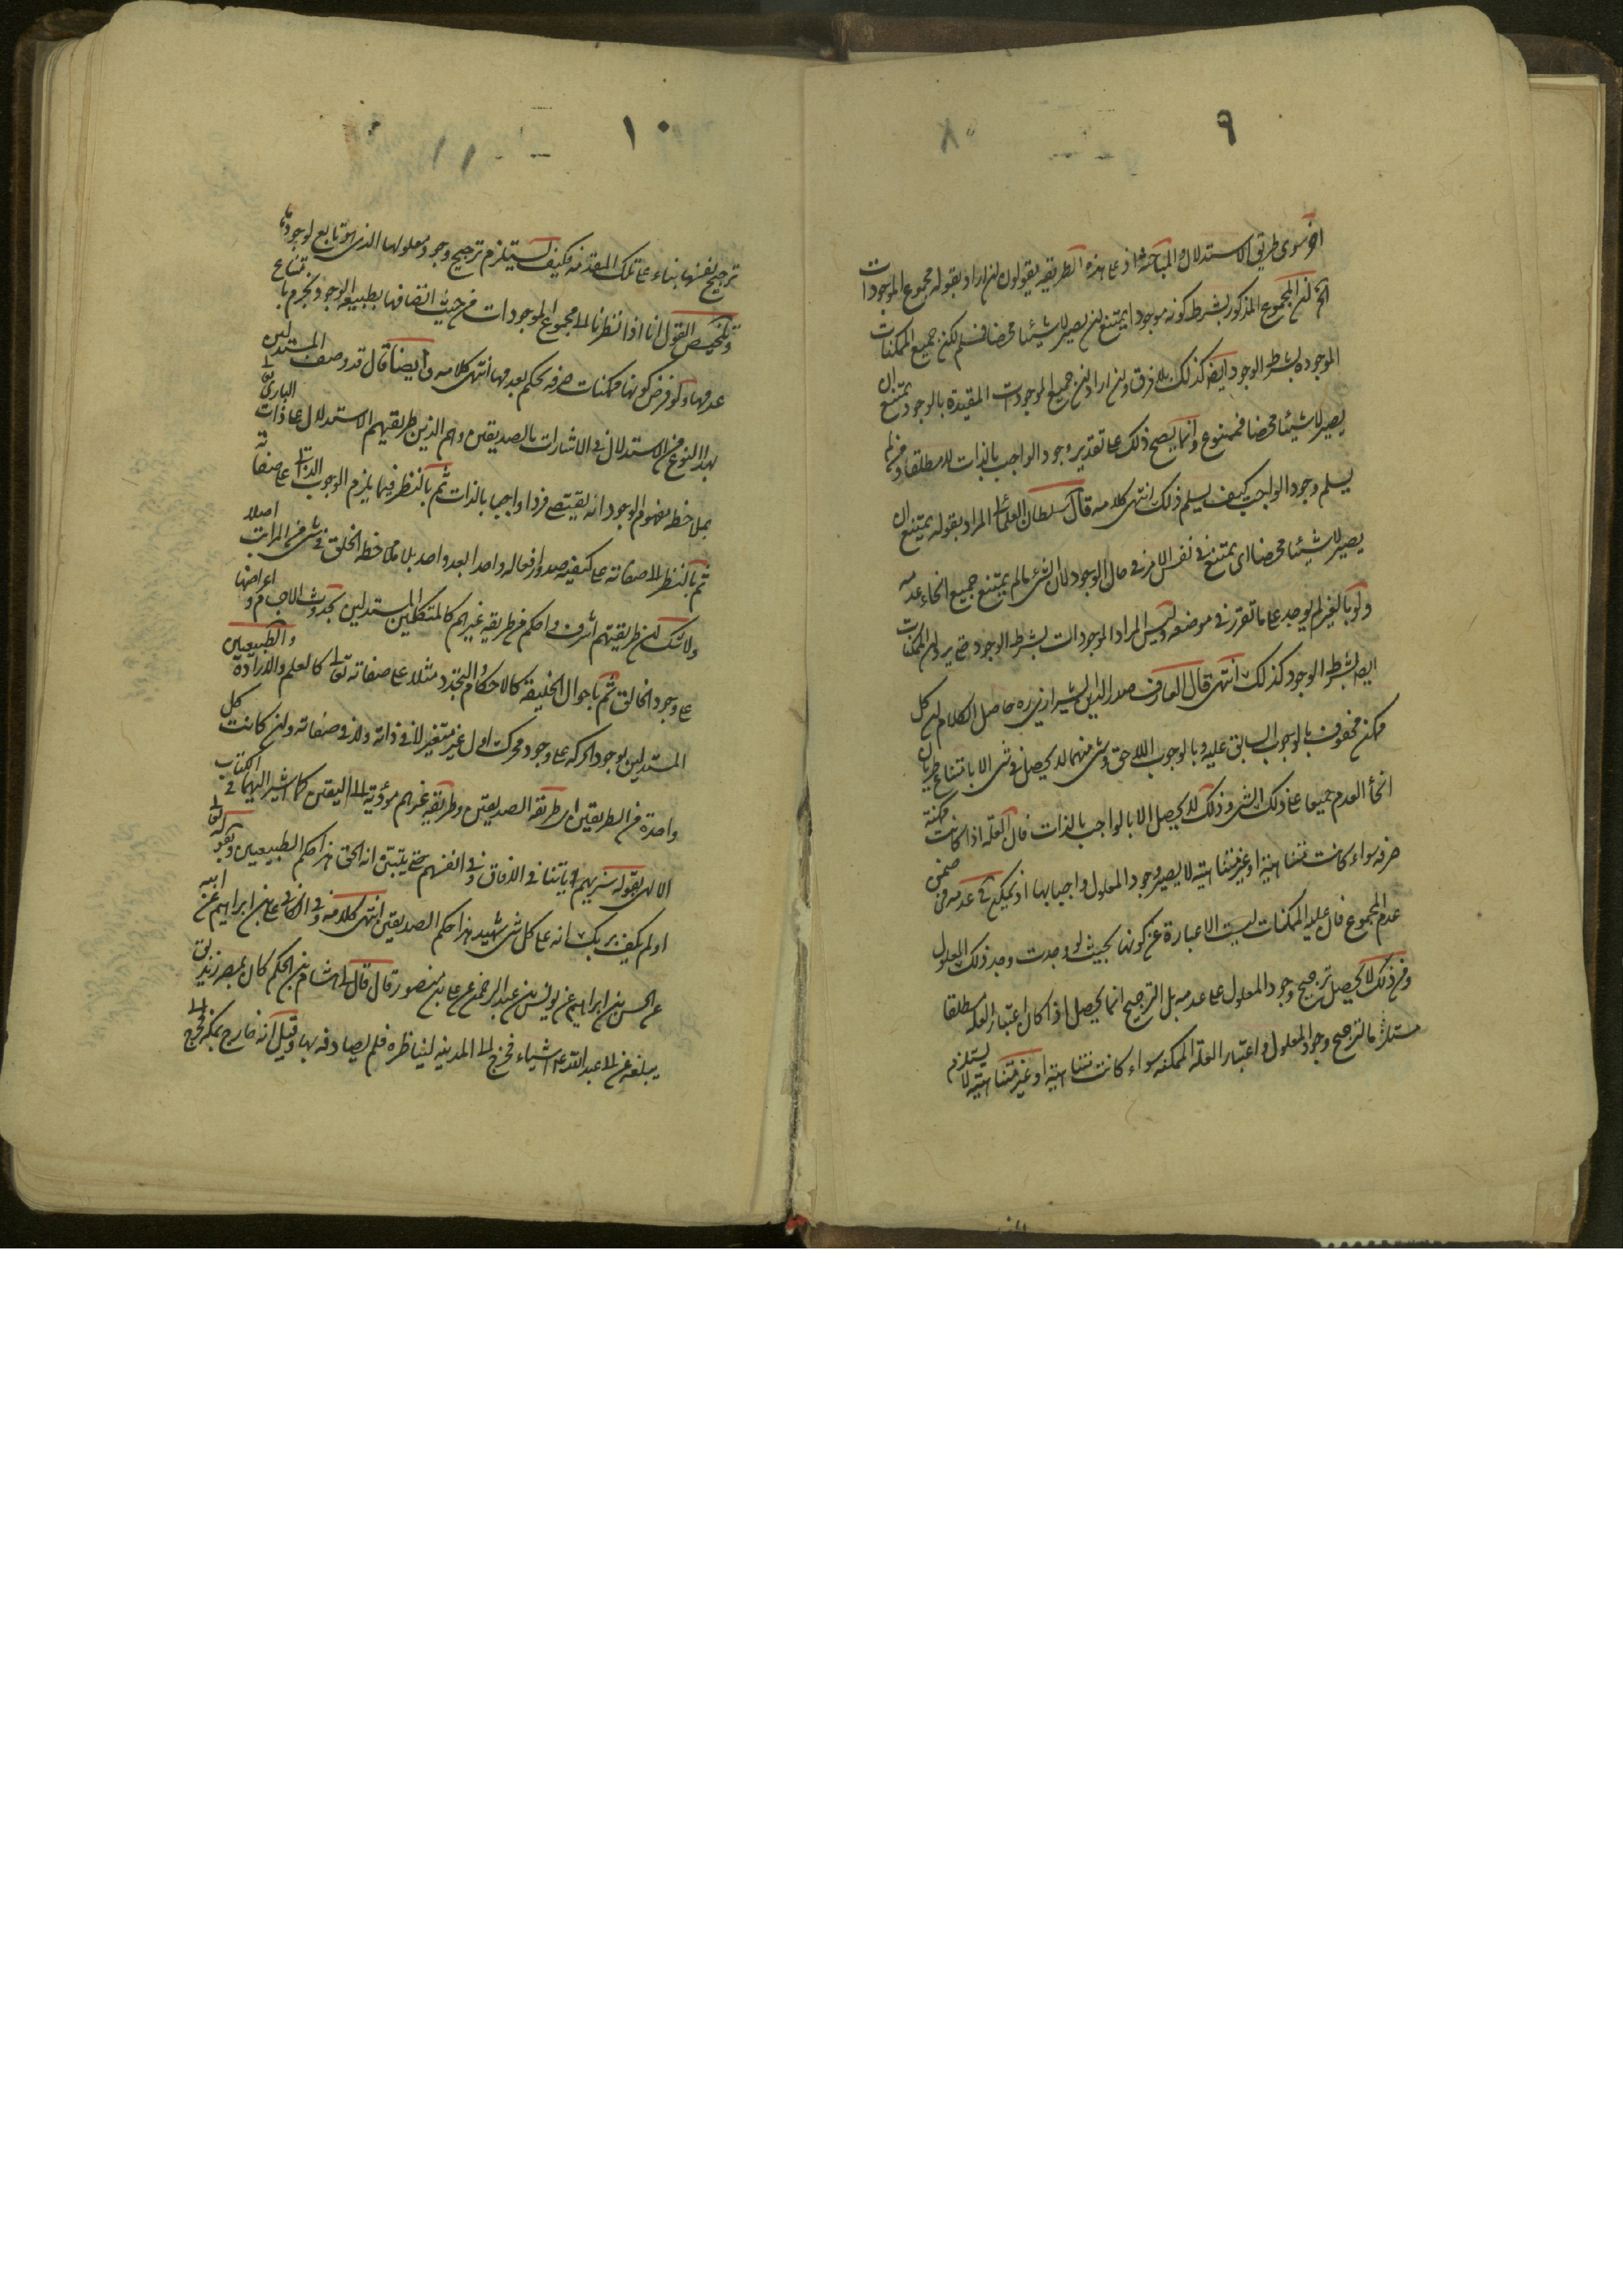 ٩
اخر سوى طريق الاستدلال والمباحثة اذ على هذه الطريقه يقولون ان اراد بقوله مجموع الموجودات
الخ ان المجموع المذكور بشرط كونه موجودا يمتنع ان يصير لا شيئا محضا فمسلم لكن جميع الممكنات
الموجوده بشرط الوجود ايضا كذلك بلا فرق وان اراد ان جميع الموجودات المقيدة بالوجود يمتنع ان
يصير لا شيئا محضا فممنوع وانما يصح ذلك على تقدير وجود الواجب بالذات لا مطلقا
يسلم وجود الواجب كيف يسلم ذلك انتهى كلامه قال سلطان العلماء المراد بقوله يمتنع ان
يصير لا شيئا محضا اى يمتنع فى نفس الامر فى حال الوجود لان الشىء ما لم يمتنع جميع انحاء عدمه
ولو بالغير لم يوجد على ما تقرر فى موضعه وليس المراد الموجودات بشرط الوجود حتى يرد ان الممكنات
ايضا بشرط الوجود كذلك انتهى قال العارف صدر الدين الشيرازى ره حاصل الكلام ان كل
ممكن محفوف بالوجوب السابق عليه وبالوجوب اللاحق وشى منهما لا يحصل فى شى الا بامتناع طريان
انحاء العدم جميعا على ذلك الشى وذلك لا يحصل الا بالواجب بالذات فان العله اذا كانت ممكنة
صرفه سواء كانت متناهية او غير متناهية لا يصير وجود المعلول واجبا بها اذ يمكن عدمه فى ضمن
عدم المجموع فان علية الممكنات ليست الا عبارة عن كونها بحيث لو وجدت وجد ذلك المعلول
ومن ذلك لا يحصل ترجيح وجود المعلول على عدمه بل الترجيح انما يحصل اذا كان اعتبار العله مطلقا
مستلزما لترجيح وجود المعلول واعتبار العله الممكنه سواء كانت متناهية او غير متناهية لا يستلزم
١٠
ترجيح نفسها بناء على تلك المقدمه فكيف يستلزم ترجيح وجود معلولها الذى هو تابع لوجودها
وتلخيص القول انا اذا نظرنا الى مجموع الموجودات من حيث اتصافها بطبيعة الوجود نجزم بامتناع
عدمها ولو فرض كونها ممكنات صرفه نحكم بعدمها انتهى كلامه وايضا قال قد وصف المستدلين
بهذا النوع من الاستدلال فى الاشارات بالصديقين وهم الذين طريقتهم الاستدلال على ذات البارى تعالى
بملاحظه مفهوم الوجود انه يقتضى فردا واجبا بالذات ثم بالنظر فيما يلزم الوجوب الذاتى على صفاته
ثم بالنظر الى صفاته على كيفيه صدور افعاله واحدا بعد واحد بلا ملاحظه الخلق فى شى من المراتب اصلا
ولا شك ان طريقتهم اشرف واحكم من طريقه غيرهم كالمتكلمين المستدلين بحدوث الاجسام واعراضها
على وجود الخالق ثم باحوال الخليقة كالاحكام والتجدد مثلا على صفاته تعالى كالعلم والارادة والطبيعيين
المستدلين بوجود الحركه على وجود محرك اول غير متغير لا فى ذاته ولا فى صفاته وان كانت كل
واحدة من الطريقين اى طريقه الصديقين وطريقه غيرهم مؤدية الى اليقين كما اشير اليهما فى الكتاب
الالهى بقوله سنريهم اياتنا فى الافاق وفى انفسهم حتى يتبين انه الحق هذا حكم الطبيعيين وبقوله تعالى
اولم يكف بربك انه على كل شى شهيد هذا حكم الصديقين انتهى كلامه وفى الكافى على بن ابراهيم عن ابيه
عن الحسن بن ابراهيم عن يونس بن عبد الرحمن عن على بن منصور قال قال لى هشام بن الحكم كان بمصر زنديق
يبلغه عن ابى عبد الله ع اشياء فخرج الى المدينه ليناظره فلم يصادفه بها وقيل انه خارج بمكه فخرج الى